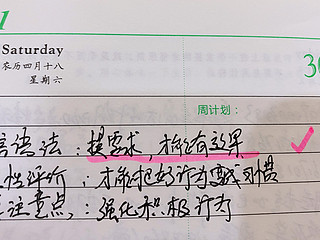 Saturday
农历四月十八
星期六
30
周计划:
言语法:提要求,才能有效果
性评价:才能把好行为变成习惯
注意点:强化积极行为